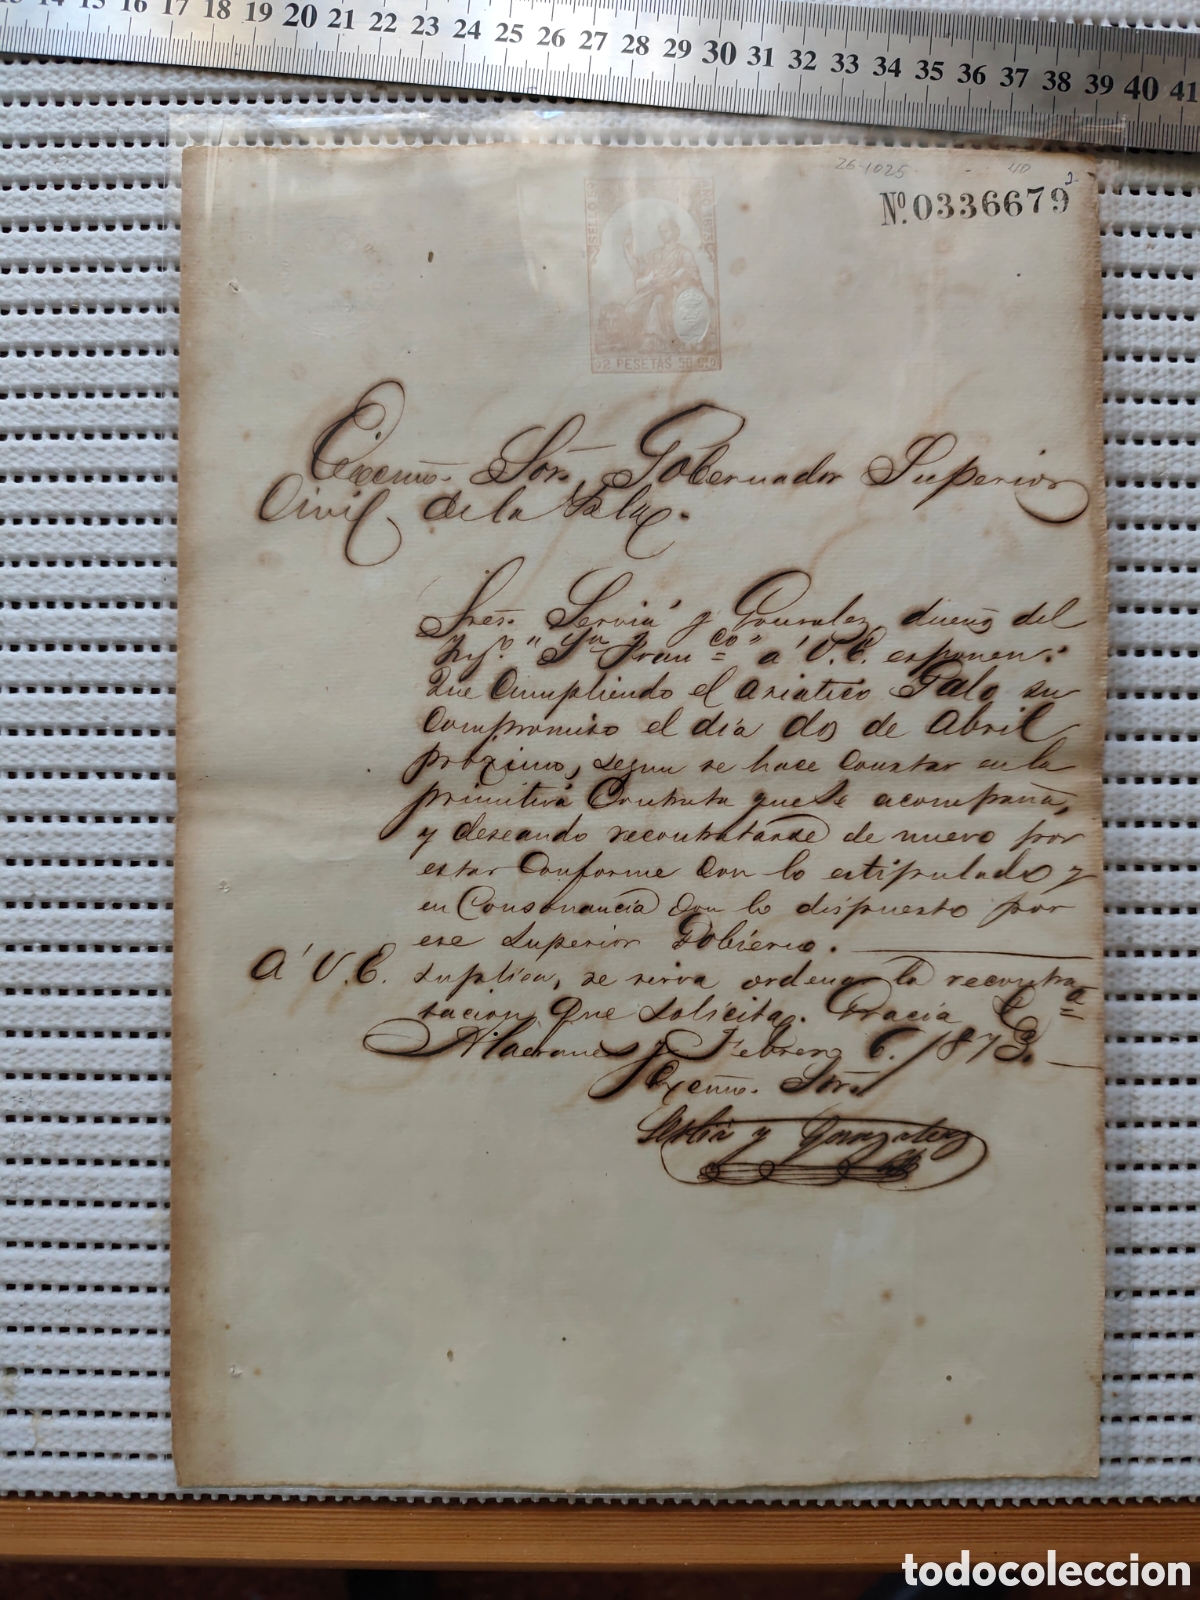 13 14 15 16 17 18 19 20 21 22 23 24 25 26 27 28 29 30 31 32 33 34 35 36 37 38 39 40 41
26-1025
40
2
Nº. 0336679
SELLO
2 PESETAS 50 C.
Excmo. Sor. Gobernador Superior
Civil de la Isla.
Sres. Serviá y Gonzalez, dueños del
Yngº. "Sn Franco" a' V.E. exponen:
Que cumpliendo el asiatico Galo su
Compromiso el dia dos de Abril
próximo, segun se hace constar en la
primitiva Contrata que se acompaña,
y deseando recontratarse de nuevo por
estar Conforme con lo estipulado y
en Consonancia con lo dispuesto por
ese Superior Gobierno.
A' V.E. suplica, se sirva ordenar la recontra
tacion que solicita. Gracia &a
Alacranes y Febrero 6. / 1873.
Excmo. Sor.
Serviá y Gonzalez
todocoleccion